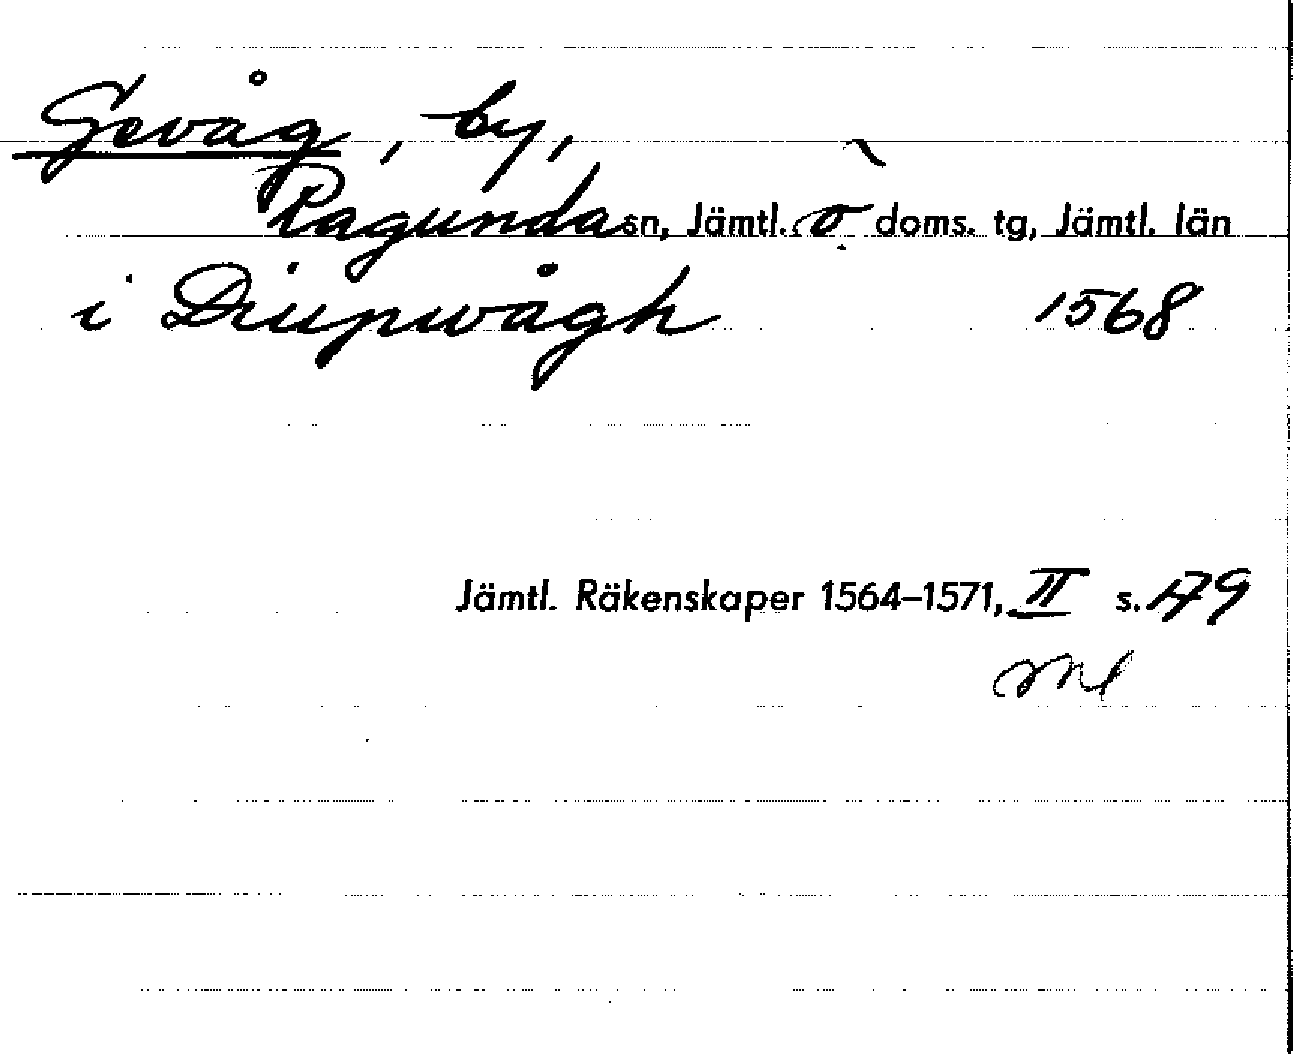 Gevåg, by,
Ragunda sn, Jämtl. ö doms. tg, Jämtl. län
i Diupwågh 1568
Jämtl. Räkenskaper 1564–1571, II s. 179